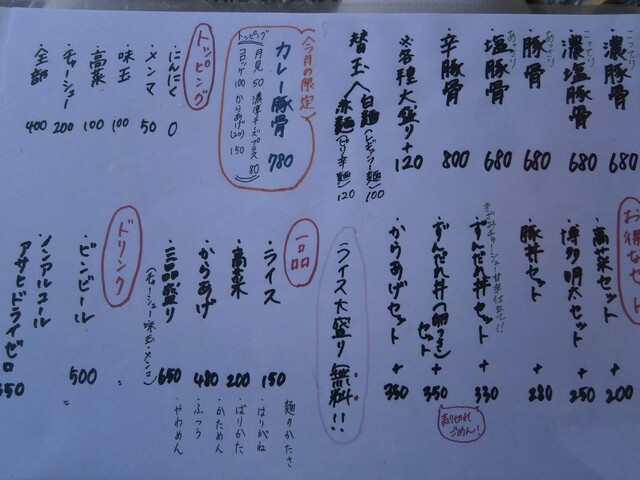 ・濃豚骨 こってり 680
・濃塩豚骨 こってり 680
・豚骨 あっさり 680
・塩豚骨 あっさり 680
・辛豚骨 800
※各種大盛り+120
替玉
白麺(レギュラー麺) 100
赤麺(ピリ辛麺) 120
今月の限定
カレー豚骨 780
トッピング
月見 50 濃厚チーズプラス 80
コロッケ 100 からあげ(2コ) 150
トッピング
・にんにく 0
・メンマ 50
・味玉 100
・高菜 100
・チャーシュー 200
・全部 400
お得なセット
・高菜セット +200
・博多明太セット +250
・豚丼セット +280
・ずんだれ丼セット +330
・ずんだれ丼(卵つき)セット +350
売り切れごめん!
・からあげセット +350
ライス大盛り無料!!
一品
・ライス 150
・高菜 200
・からあげ 480
・三品盛り 650
(チャーシュー・味玉・メンマ)
麺のかたさ
・はりがね
・ばりかた
・かためん
・ふつう
・やわめん
ドリンク
・ビンビール 500
・ノンアルコール
アサヒドライゼロ 350